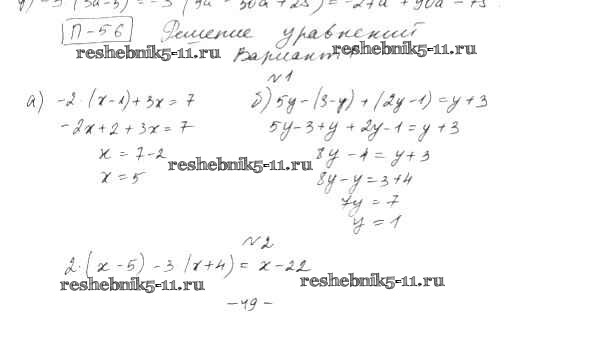 y) -3 (3a-5) = -3 (9a² - 30a + 25) = -27a² + 90a - 75.
П-56 Решение уравнений
reshebnik5-11.ru reshebnik5-11.ru
Вариант 1
№1
а) -2·(x-1)+3x=7 б) 5y-(3-y)+(2y-1)=y+3
-2x+2+3x=7 5y-3+y+2y-1=y+3
x=7-2 8y-4=y+3
reshebnik5-11.ru
x=5 8y-y=3+4
7y=7
y=1
№2
2·(x-5)-3(x+4)=x-22
reshebnik5-11.ru reshebnik5-11.ru
-49-